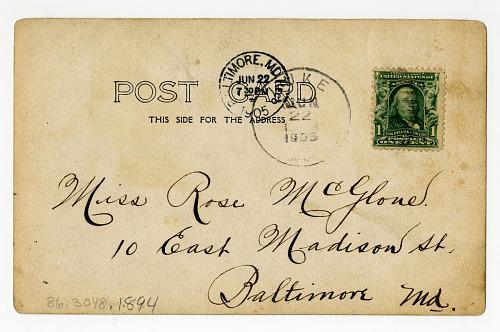 POST CARD
THIS SIDE FOR THE ADDRESS
BALTIMORE, MD.
JUN 22
7 30 PM
1905
PIKE
JUN
22
1905
1
ONE CENT
Miss Rose McGlone.
10 East Madison St.
Baltimore Md.
86.3048.1894